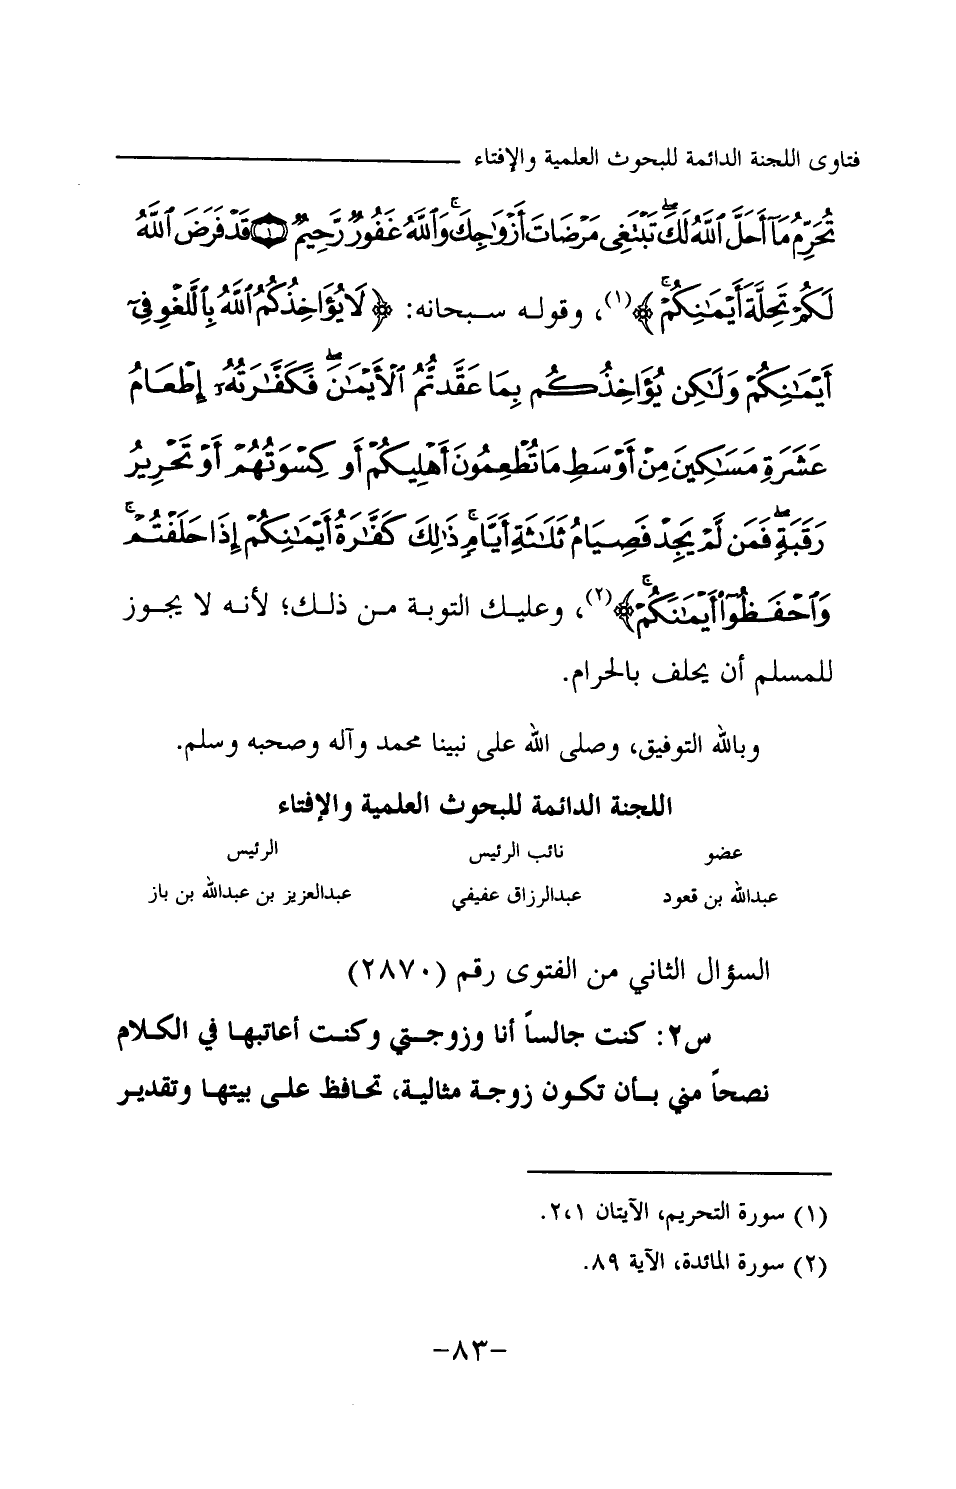 فتاوى اللجنة الدائمة للبحوث العلمية والإفتاء
تُحَرِّمُ مَآ أَحَلَّ ٱللَّهُ لَكَۖ تَبۡتَغِي مَرۡضَاتَ أَزۡوَٰجِكَۚ وَٱللَّهُ غَفُورٞ رَّحِيمٞ ١ قَدۡ فَرَضَ ٱللَّهُ
لَكُمۡ تَحِلَّةَ أَيۡمَٰنِكُمۡۚ﴾(١)، وقوله سبحانه: ﴿لَا يُؤَاخِذُكُمُ ٱللَّهُ بِٱللَّغۡوِ فِيٓ
أَيۡمَٰنِكُمۡ وَلَٰكِن يُؤَاخِذُكُم بِمَا عَقَّدتُّمُ ٱلۡأَيۡمَٰنَۖ فَكَفَّٰرَتُهُۥٓ إِطۡعَامُ
عَشَرَةِ مَسَٰكِينَ مِنۡ أَوۡسَطِ مَا تُطۡعِمُونَ أَهۡلِيكُمۡ أَوۡ كِسۡوَتُهُمۡ أَوۡ تَحۡرِيرُ
رَقَبَةٖۖ فَمَن لَّمۡ يَجِدۡ فَصِيَامُ ثَلَٰثَةِ أَيَّامٖۚ ذَٰلِكَ كَفَّٰرَةُ أَيۡمَٰنِكُمۡ إِذَا حَلَفۡتُمۡۚ
وَٱحۡفَظُوٓاْ أَيۡمَٰنَكُمۡۚ﴾(٢)، وعليك التوبة من ذلك؛ لأنه لا يجوز
للمسلم أن يحلف بالحرام.
وبالله التوفيق، وصلى الله على نبينا محمد وآله وصحبه وسلم.
اللجنة الدائمة للبحوث العلمية والإفتاء
عضو نائب الرئيس الرئيس
عبدالله بن قعود عبدالرزاق عفيفي عبدالعزيز بن عبدالله بن باز
السؤال الثاني من الفتوى رقم (٢٨٧٠)
س٢: كنت جالساً أنا وزوجتي وكنت أعاتبها في الكلام
نصحاً مني بأن تكون زوجة مثالية، تحافظ على بيتها وتقدير
(١) سورة التحريم، الآيتان ٢،١.
(٢) سورة المائدة، الآية ٨٩.
-٨٣-